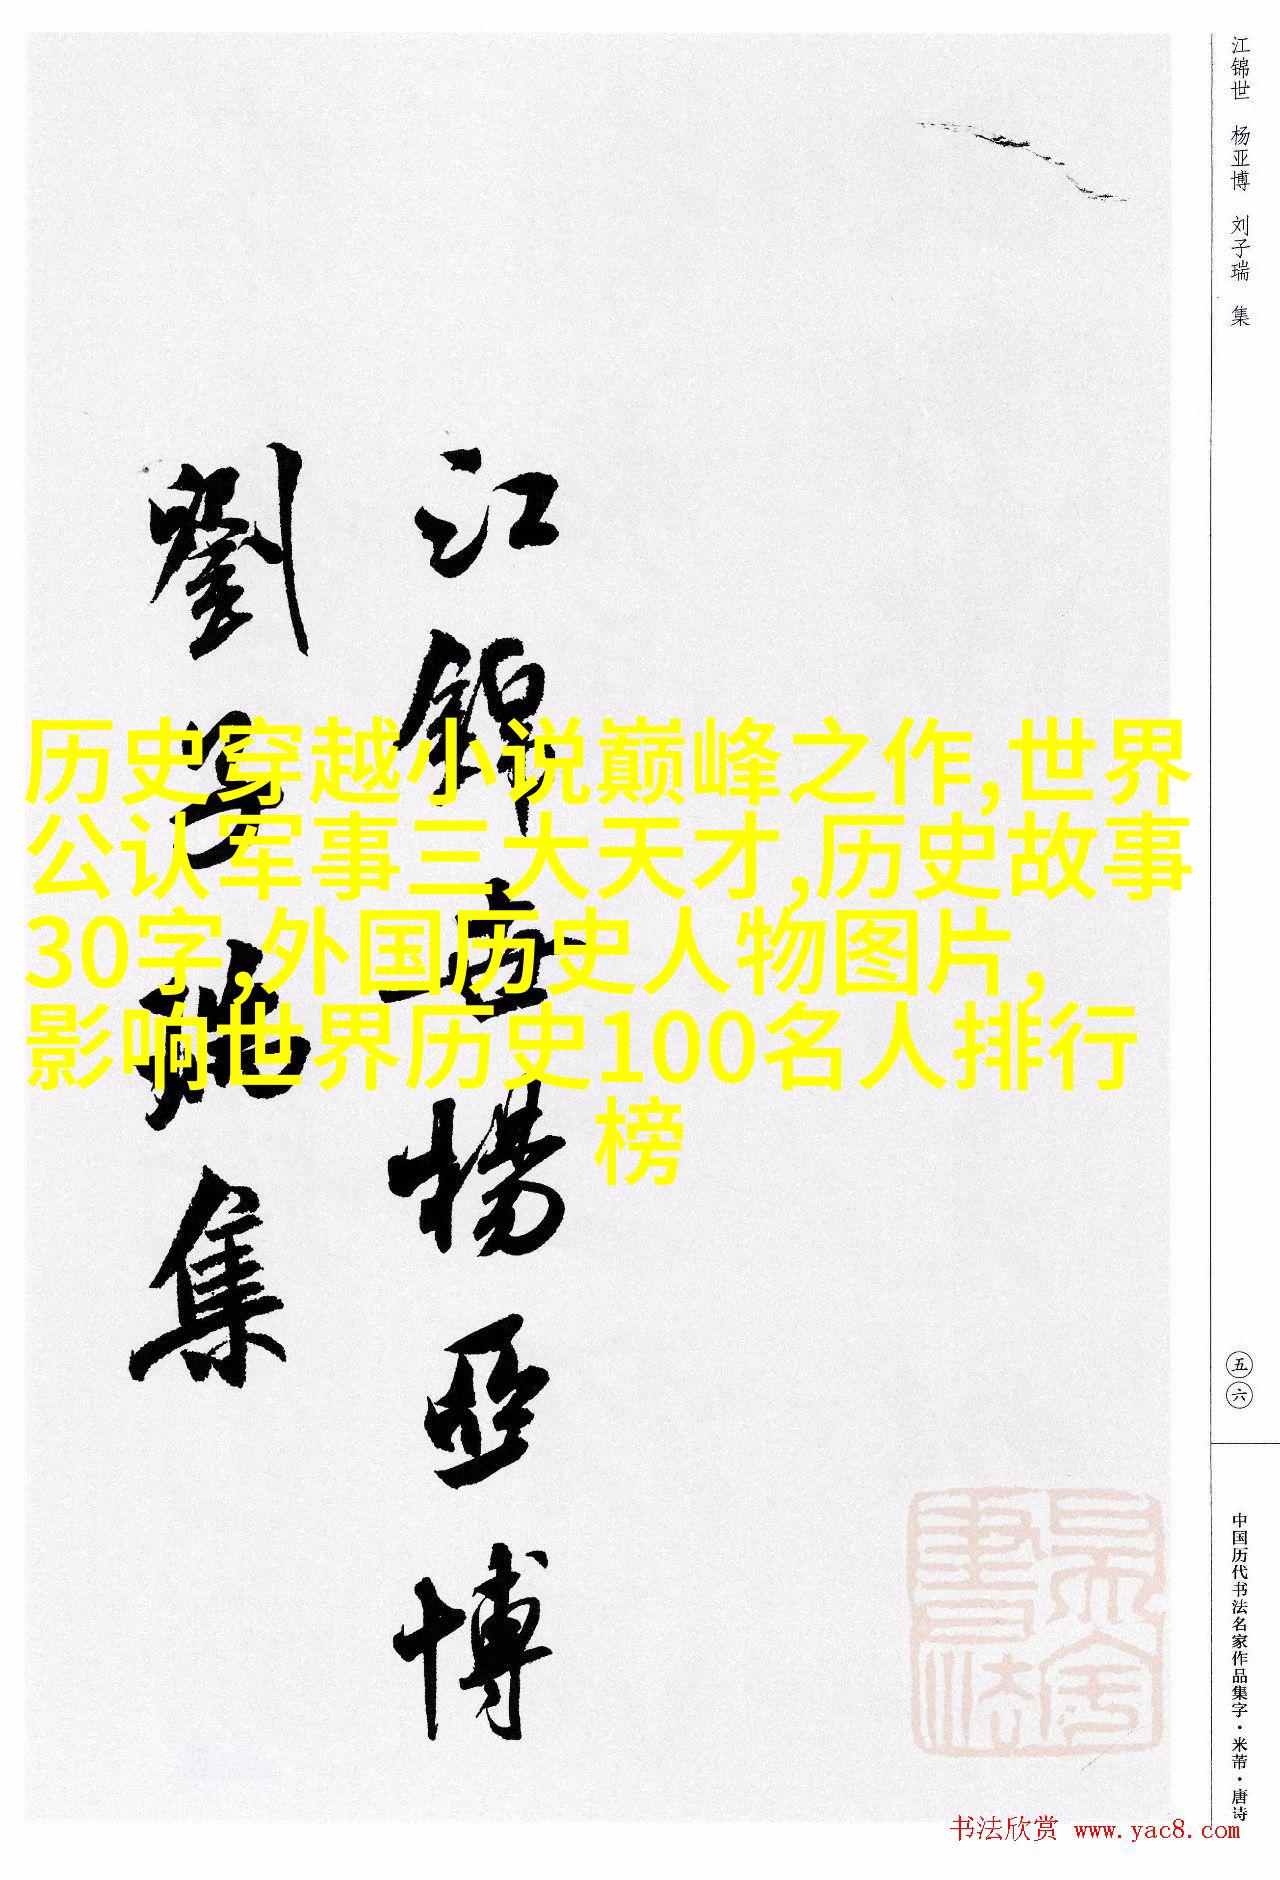 江锦世 杨亚博 刘子瑞 集
江錦世楊亞博
劉子瑞集
历史穿越小说巅峰之作,世界
公认军事三大天才,历史故事
30字,外国历史人物图片,
影响世界历史100名人排行
榜
五六
中国历代书法名家作品集字·米芾·唐诗
书法欣赏 www.yac8.com